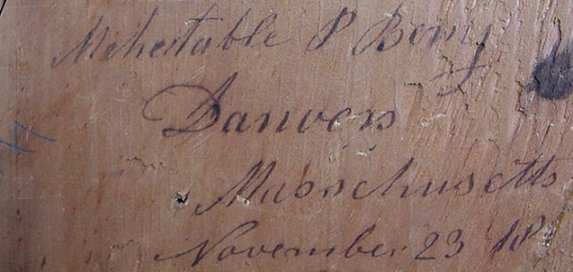 Mehestable P Berry
Danvers
Massachusetts
November 23 18